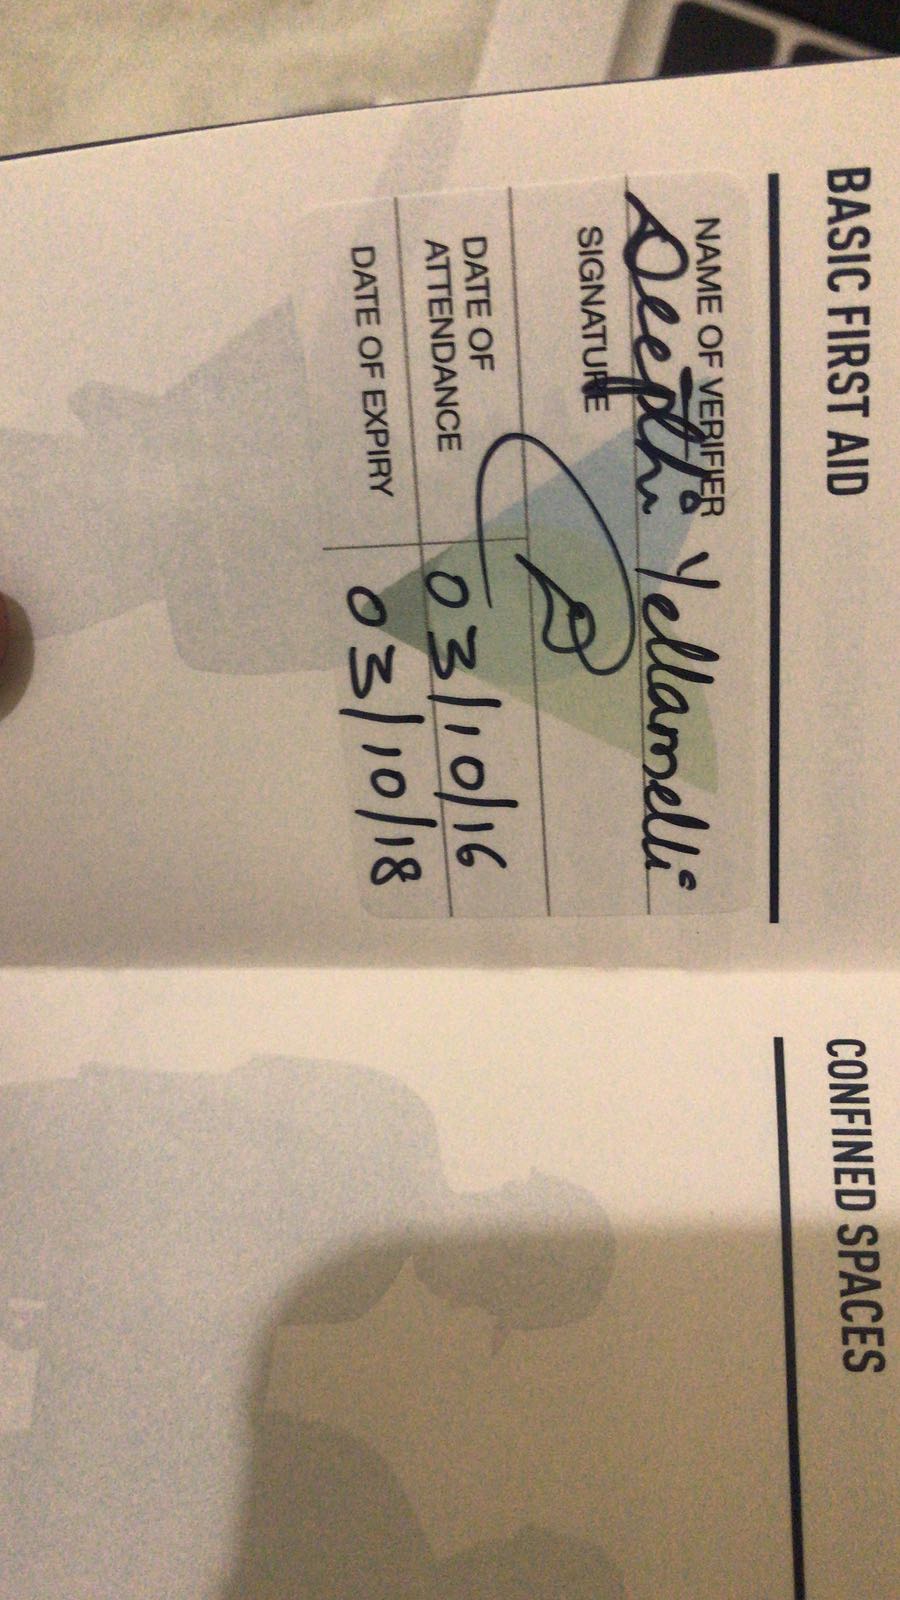 BASIC FIRST AID
NAME OF VERIFIER
Deepthi Yellamelli
SIGNATURE
DATE OF
ATTENDANCE
03/10/16
DATE OF EXPIRY
03/10/18
CONFINED SPACES